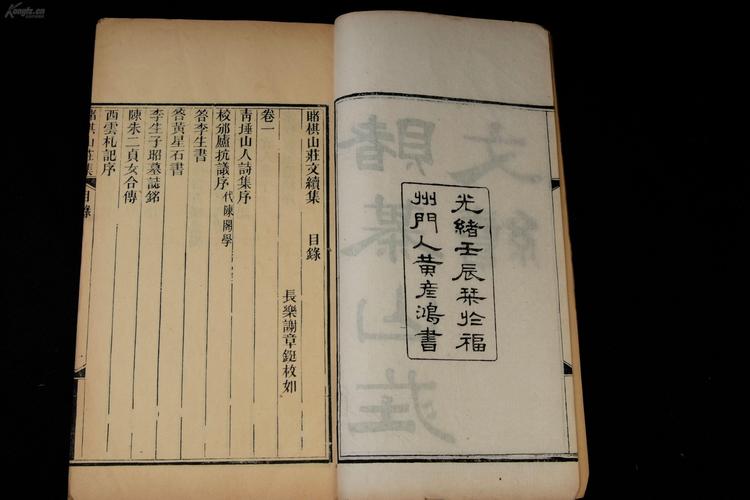 光緒壬辰栞於福
州門人黃彥鴻書
賭棋山莊文續集 目錄
長樂謝章鋌枚如
卷一
青埵山人詩集序
校邠廬抗議序 代陳閣學
答李生書
答黃星石書
李生子昭墓誌銘
陳朱二貞女合傳
西雲札記序
賭棋山莊集 目錄
Kongfz.cn